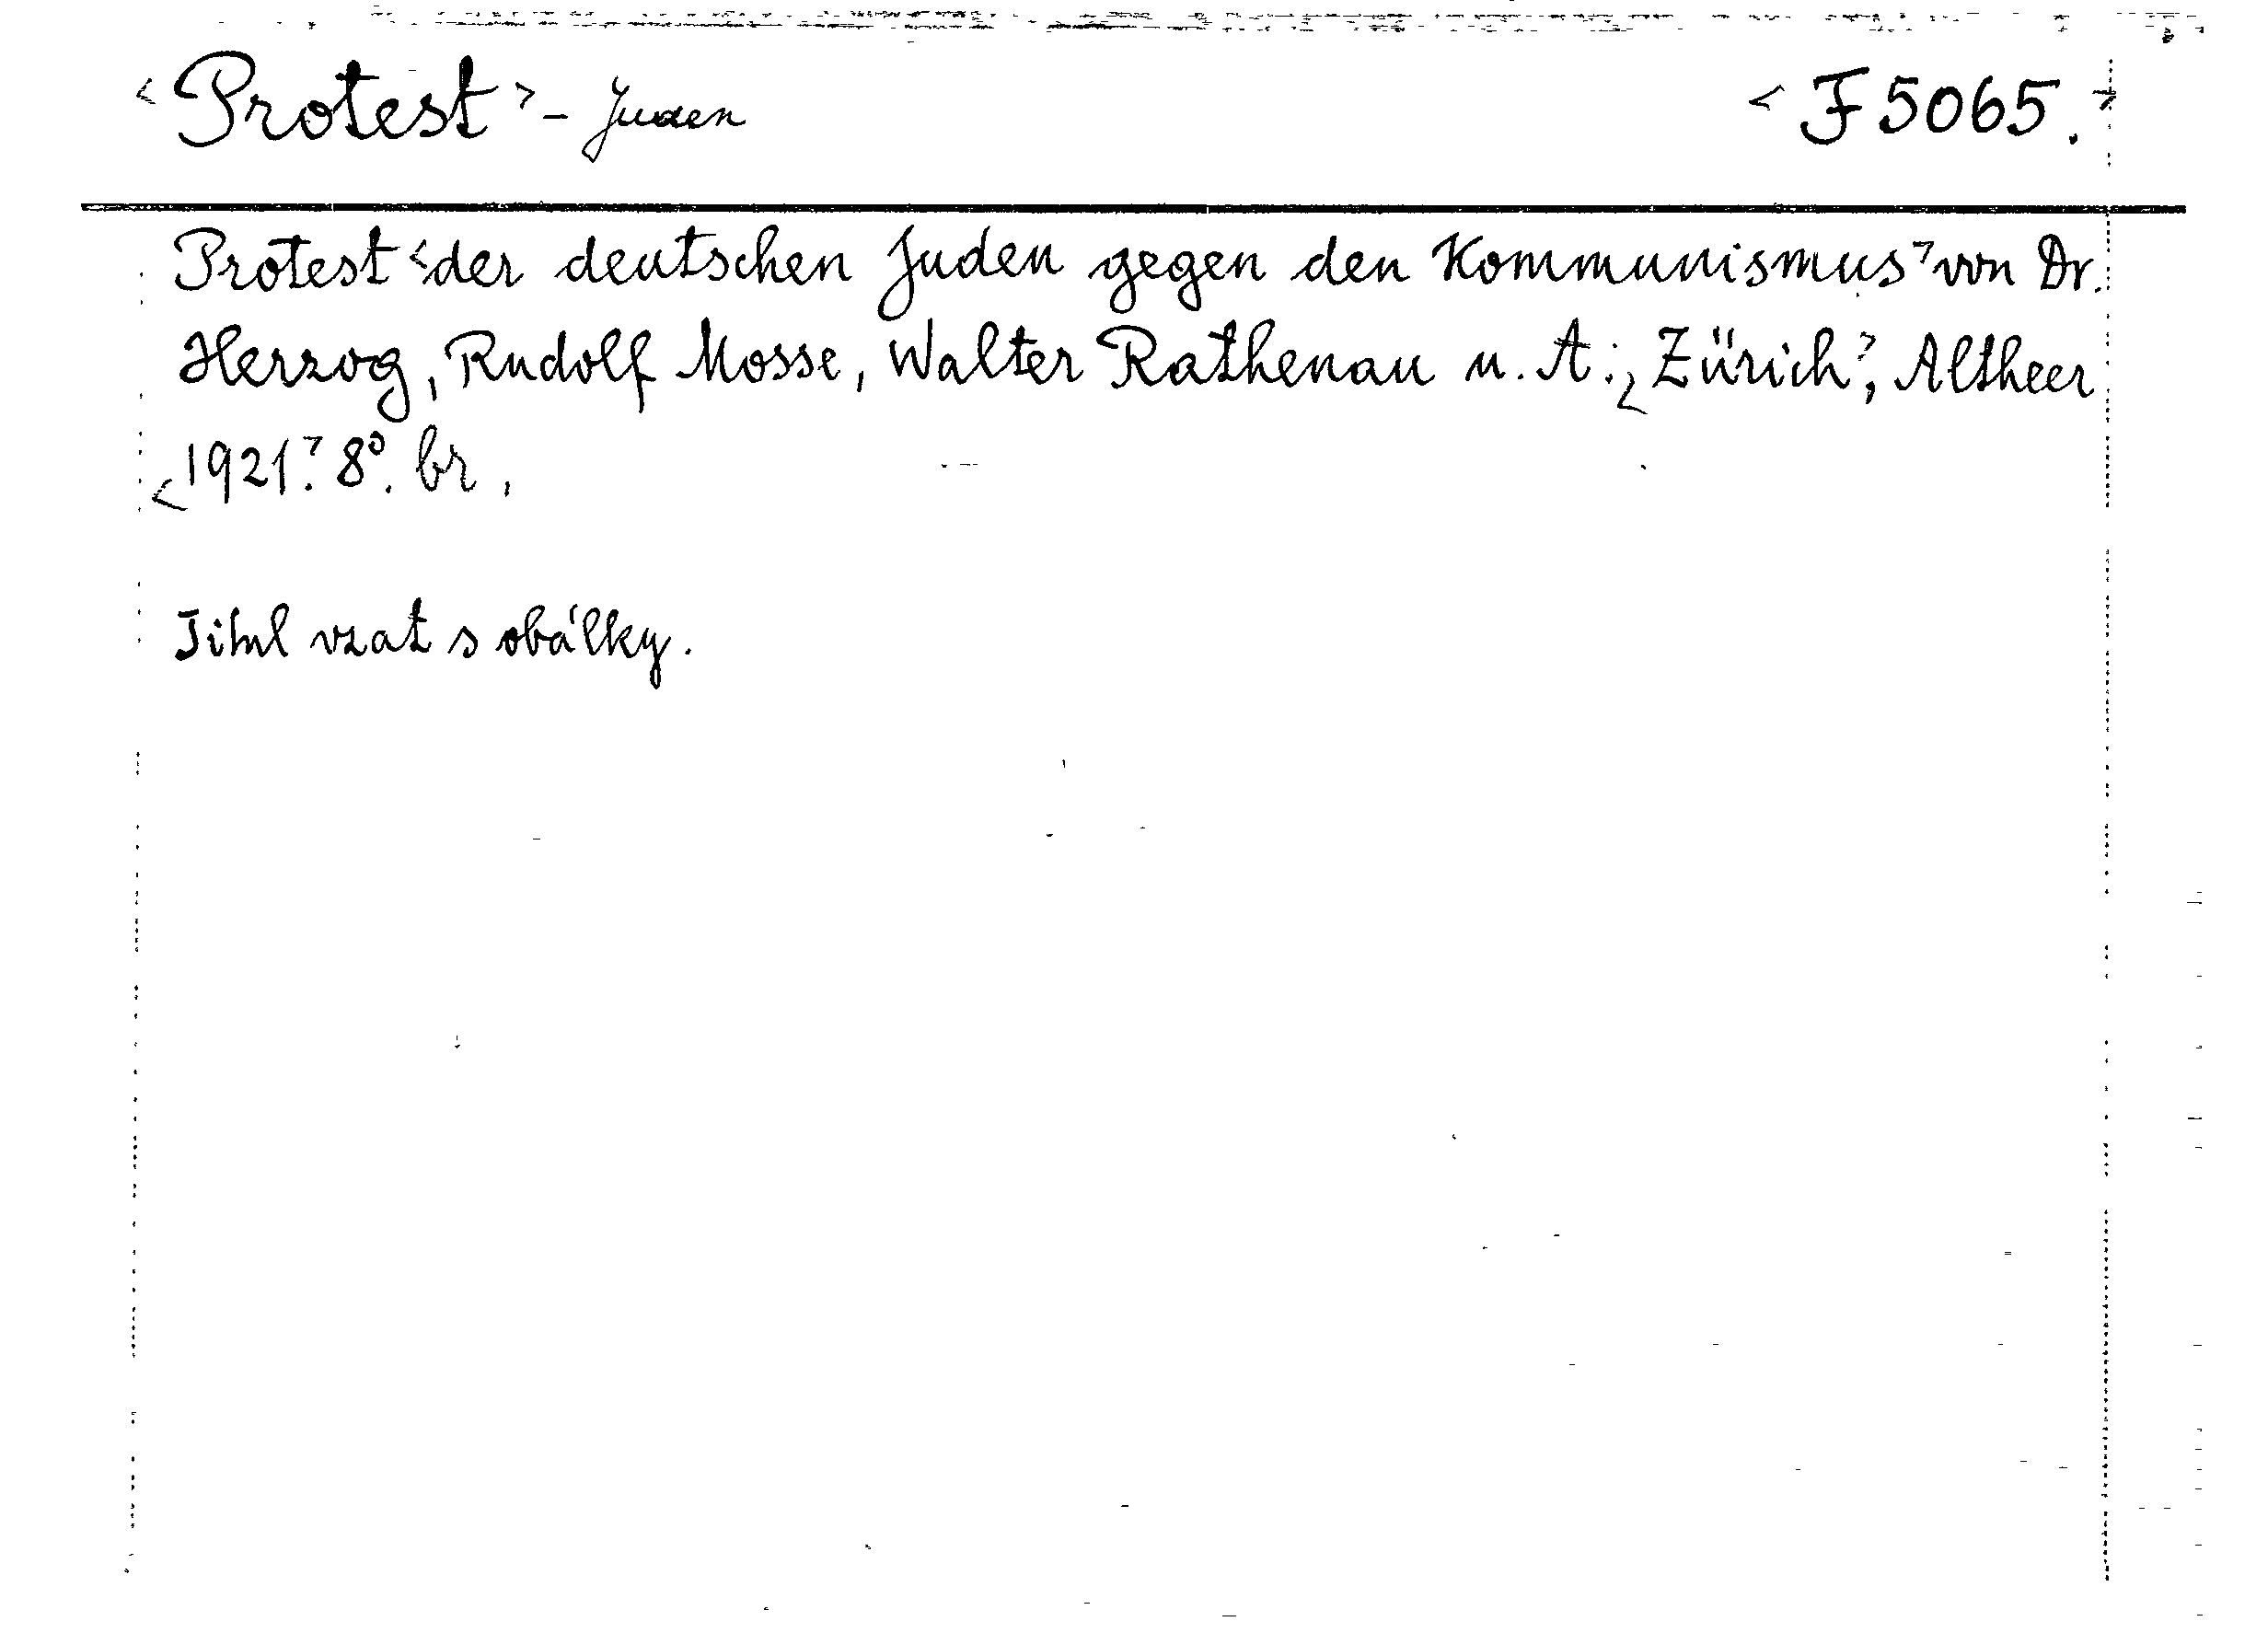 <Protest> - Juden <F 5065.>
Protest <der deutschen Juden gegen den Kommunismus> von Dr.
Herzog, Rudolf Mosse, Walter Rathenau u. A.; <Zürich>, Altheer
<1921>. 8°. br.
Titul vzat s obálky.